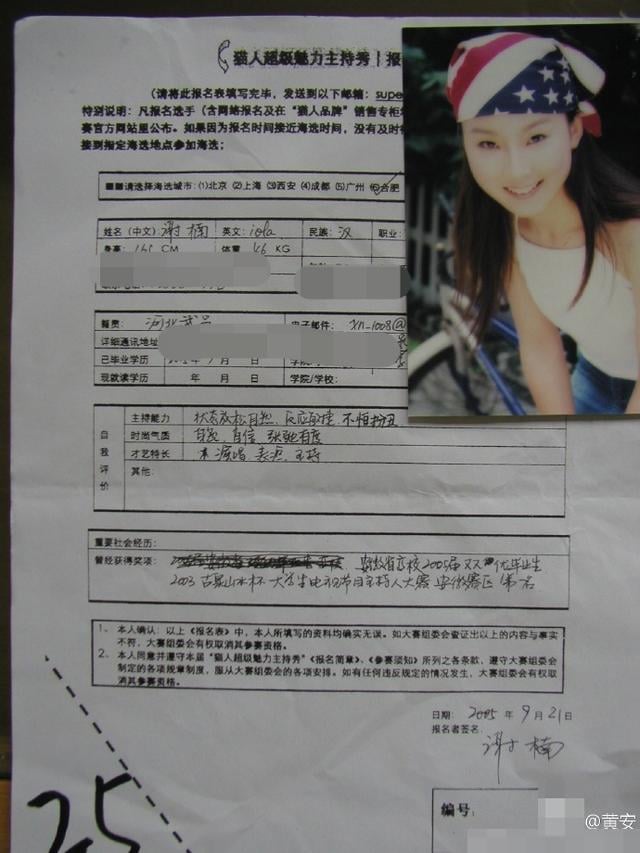 猫人超级魅力主持秀 | 报
(请将此报名表填写完毕,发送到以下邮箱:supe
特别说明:凡报名选手(含网络报名及在“猫人品牌”销售专柜
赛官方网站里公布。如果因为报名时间接近海选时间,没有及时
接到指定海选地点参加海选;
■■请选择海选城市:⑴北京 ⑵上海 ⑶西安 ⑷成都 ⑸广州 ⑹合肥
姓名(中文) 谢楠 英文:iola 民族:汉 职业:
身高:165 CM 体重 46 KG
籍贯: 河北 电子邮件: xn-1008@
详细通讯地址
已毕业学历 年 7 月 日 学院/
现就读学历 年 月 日 学院/学校:
自我评价
主持能力 状态放松自然、反应敏捷、不怕扮丑
时尚气质 自信 张驰有度
才艺特长 演唱 表演 主持
其他:
重要社会经历:
曾经获得奖项: 安徽省高校2005届双优毕业生
2003 古泉山水杯 大学生电视节目主持人大赛 安徽赛区 第一名
1、本人确认:以上《报名表》中,本人所填写的资料均确实无误。如大赛组委会查证出以上的内容与事实
不符,大赛组委会有权取消其参赛资格。
2、本人同意并遵守本届“猫人超级魅力主持秀”《报名简章》、《参赛须知》所列之各条款,遵守大赛组委会
制定的各项规章制度,服从大赛组委会的各项安排。如有任何违反规定的情况发生,大赛组委会有权取
消其参赛资格。
日期: 2005 年 9 月 21 日
报名者签名:
谢楠
编号:
25
@黄安